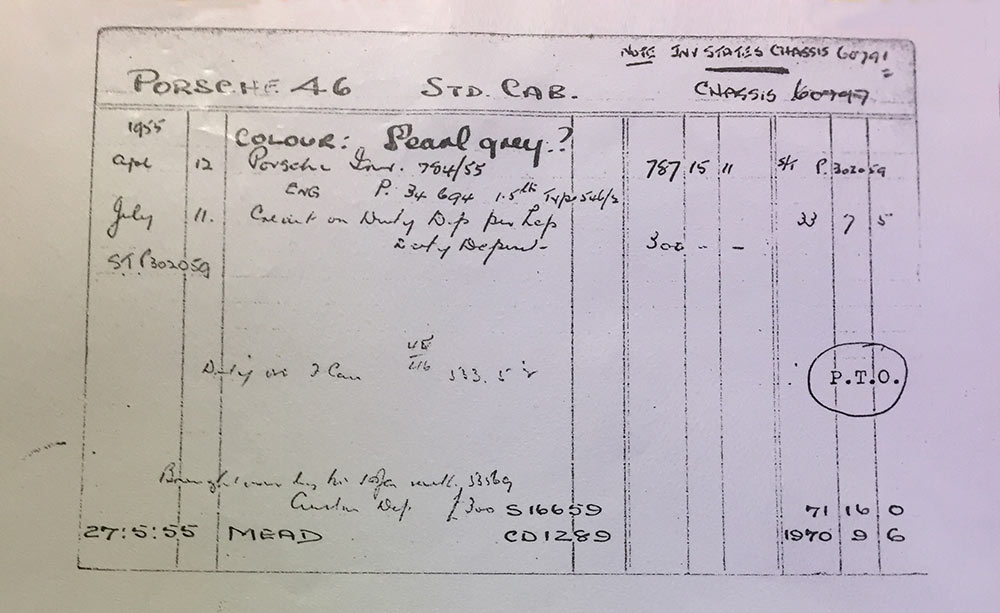 NOTE INV STATES CHASSIS 60791
PORSCHE 46 STD. CAB. CHASSIS 60797
1955 COLOUR: Pearl grey?
Apl 12 Porsche Inv. 784/55 787 15 11 S/T P.302059
ENG P. 34 694 1.5 Type 546/2
July 11. Credit on Duty Dep per 33 7 5
Duty Deposit 300 - -
ST P302059
Duty on 2 Cars 333.5
P.T.O.
Brought over by
Custom Dep £300 S16659 71 16 0
27:5:55 MEAD CD1289 1970 9 6